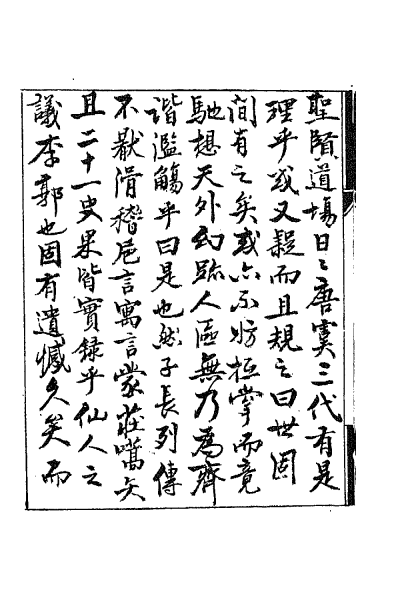 聖賢道場日〻唐虞三代有是
理乎或又疑而且規之曰世固
間有之矣或亦不妨抵掌而竟
馳想天外幻跡人區無乃為齊
諧濫觴乎曰是也然子長列傳
不厭滑稽巵言寓言蒙莊嚆矢
且二十一史果皆實錄乎仙人之
議李郭也固有遺憾久矣而